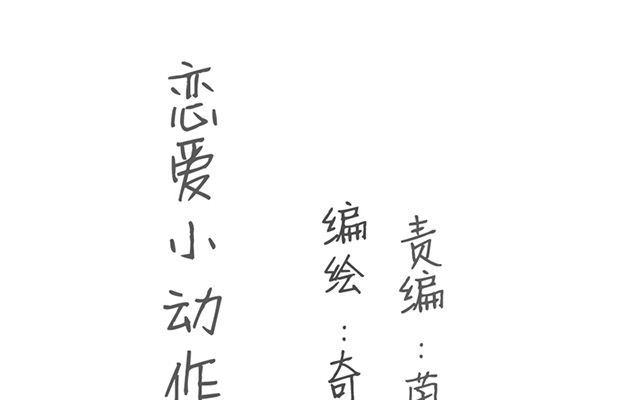 恋爱小动作
编绘：奇
责编：